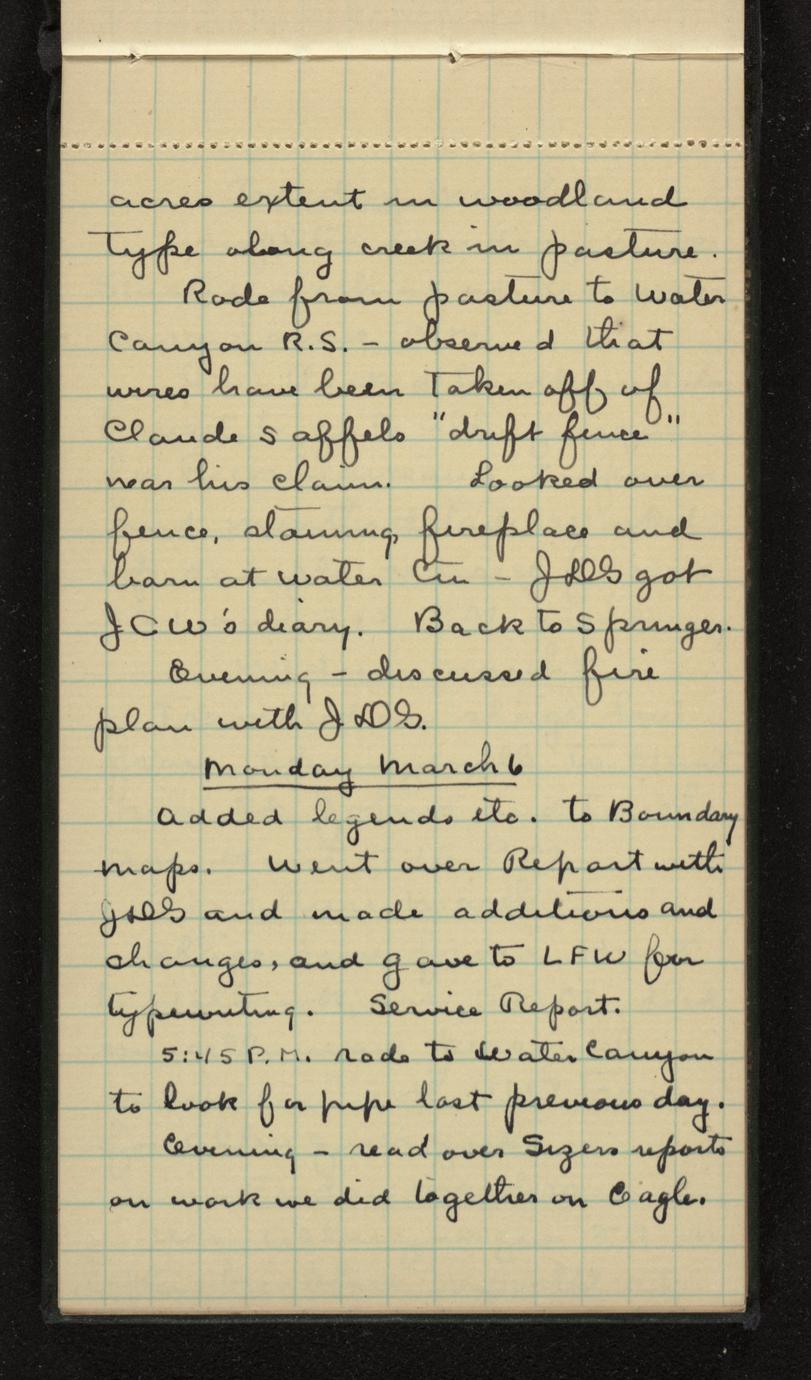 acres extent in woodland
type along creek in pasture.
Rode from pasture to Water
Canyon R.S. - observed that
wires have been taken off of
Claude Saffels "drift fence"
near his claim. Looked over
fence, staining, fireplace and
barn at Water Cn - JDG got
JCW's diary. Back to Springer.
Evening - discussed fire
plan with JDG.
Monday March 6
Added legends etc. to Boundary
maps. Went over Report with
JDG and made additions and
changes, and gave to LFW for
typewriting. Service Report.
5:45 P.M. rode to Water Canyon
to look for pipe lost previous day.
Evening - read over Sizers reports
on work we did together on Eagle.